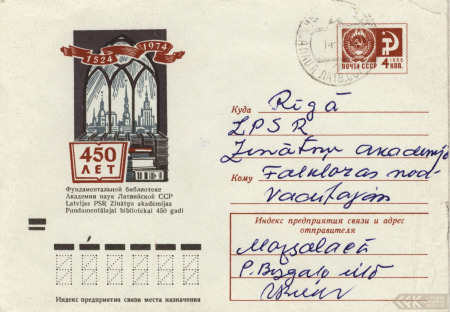 1524 1974
450
ЛЕТ
Фундаментальной библиотеке
Академии наук Латвийской ССР
Latvijas PSR Zinātņu akadēmijas
Fundamentālajai bibliotēkai 450 gadi
ПОЧТА СССР
4 КОП.
1966
Куда Rīgā
LPSR
Zinātņu akadēmijā
Кому Folkloras nod.
vadītājam
Индекс предприятия связи и адрес
отправителя
Mazsalacā
P.
Индекс предприятия связи места назначения